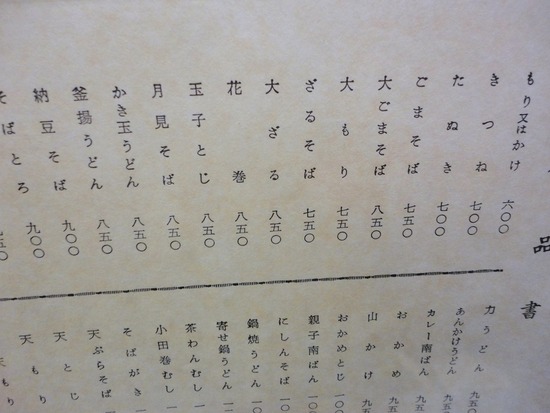 品書
もり又はかけ 六〇〇
きつね 七〇〇
たぬき 七〇〇
ごまそば 七五〇
大ごまそば 八五〇
大もり 七五〇
ざるそば 七五〇
大ざる 八五〇
花巻 八五〇
玉子とじ 八五〇
月見そば 八五〇
かき玉うどん 八五〇
釜揚うどん 九〇〇
納豆そば 九〇〇
そばとろ 九五〇
力うどん 九五
あんかけうどん 九五
カレー南ばん 九五
おかめ 九五
山かけ 九五
おかめとじ 一〇
親子南ばん 一〇
にしんそば 一〇
鍋焼うどん 一
寄せ鍋うどん 一
茶わんむし 一
小田巻むし 一
そばがき 一
天ぷらそば
天とじ
天もり
天